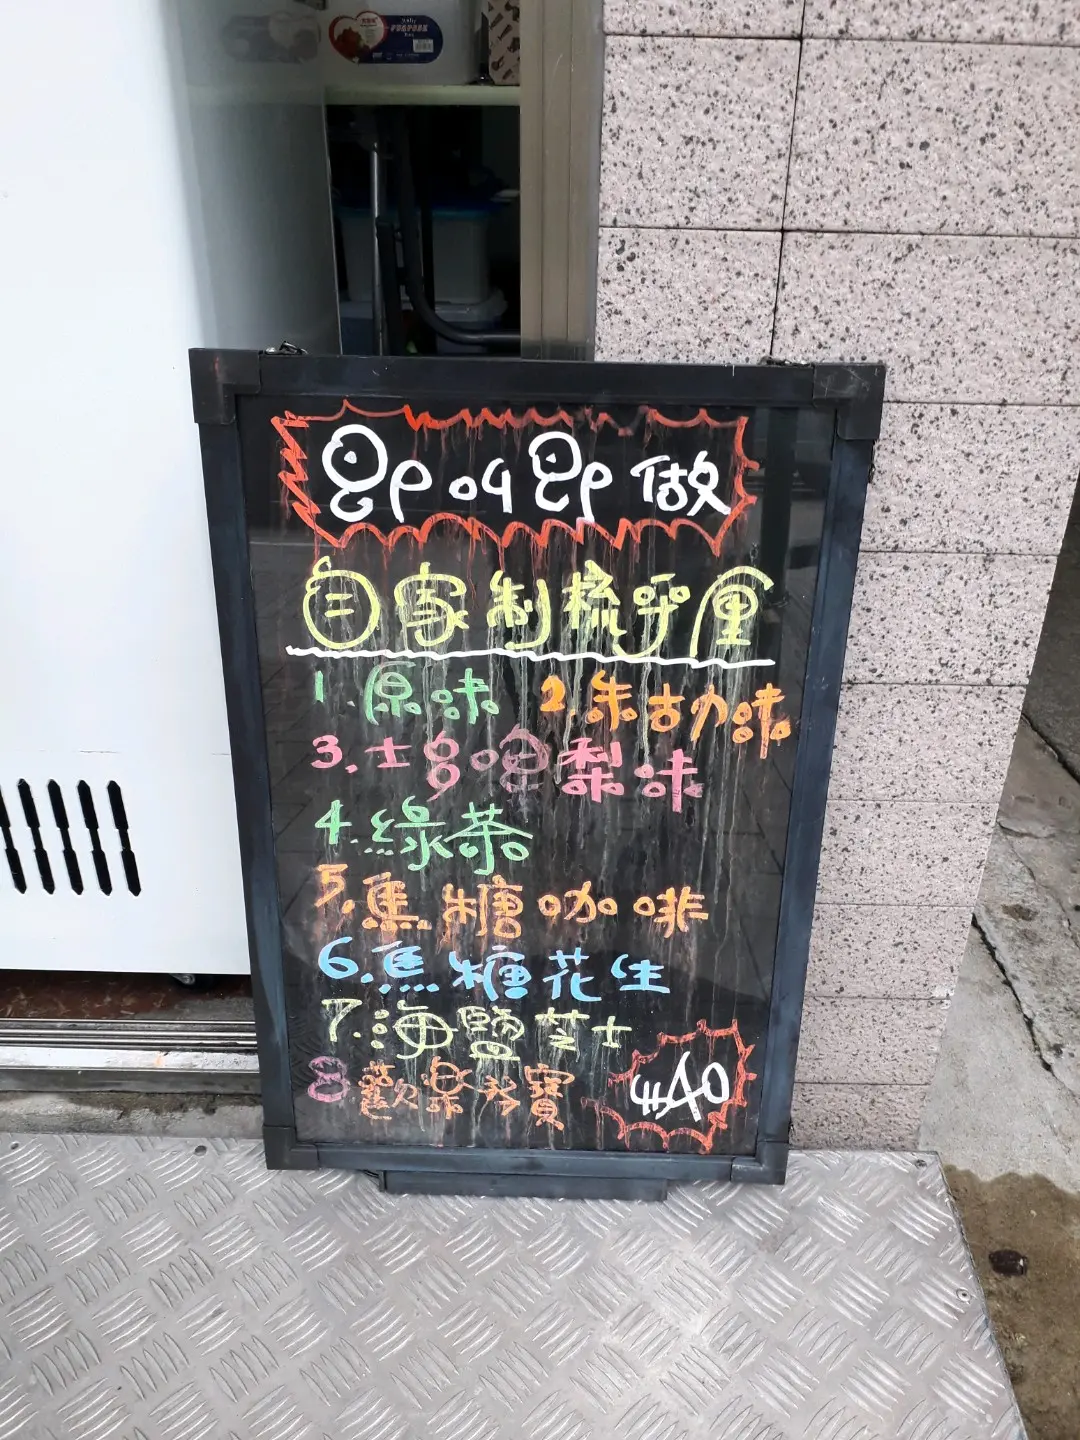 即叫即做
自家制梳乎厘
1.原味 2.朱古力味
3.士多啤梨味
4.綠茶
5.焦糖咖啡
6.焦糖花生
7.海鹽芝士
8歡樂多寶
$40